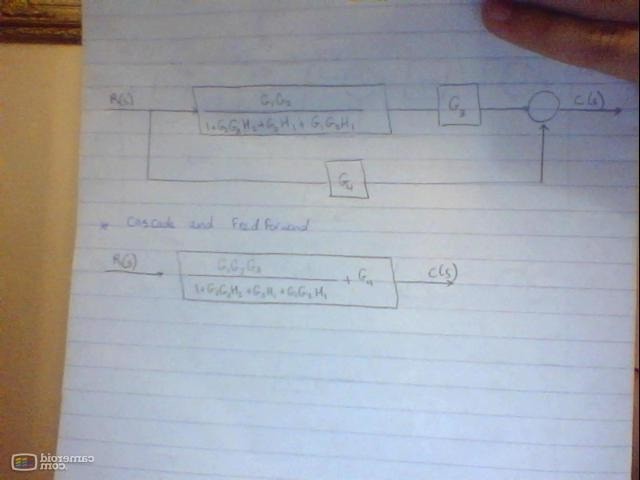 R(s)
G₁G₂
1+G₂G₃H₂+G₂H₁+G₁G₂H₁
G₃
C(s)
G₄
* Cascade and Feed Forward
R(s)
G₁G₂G₃
1+G₂G₃H₂+G₂H₁+G₁G₂H₁
+ G₄
C(s)
cameroid
.com